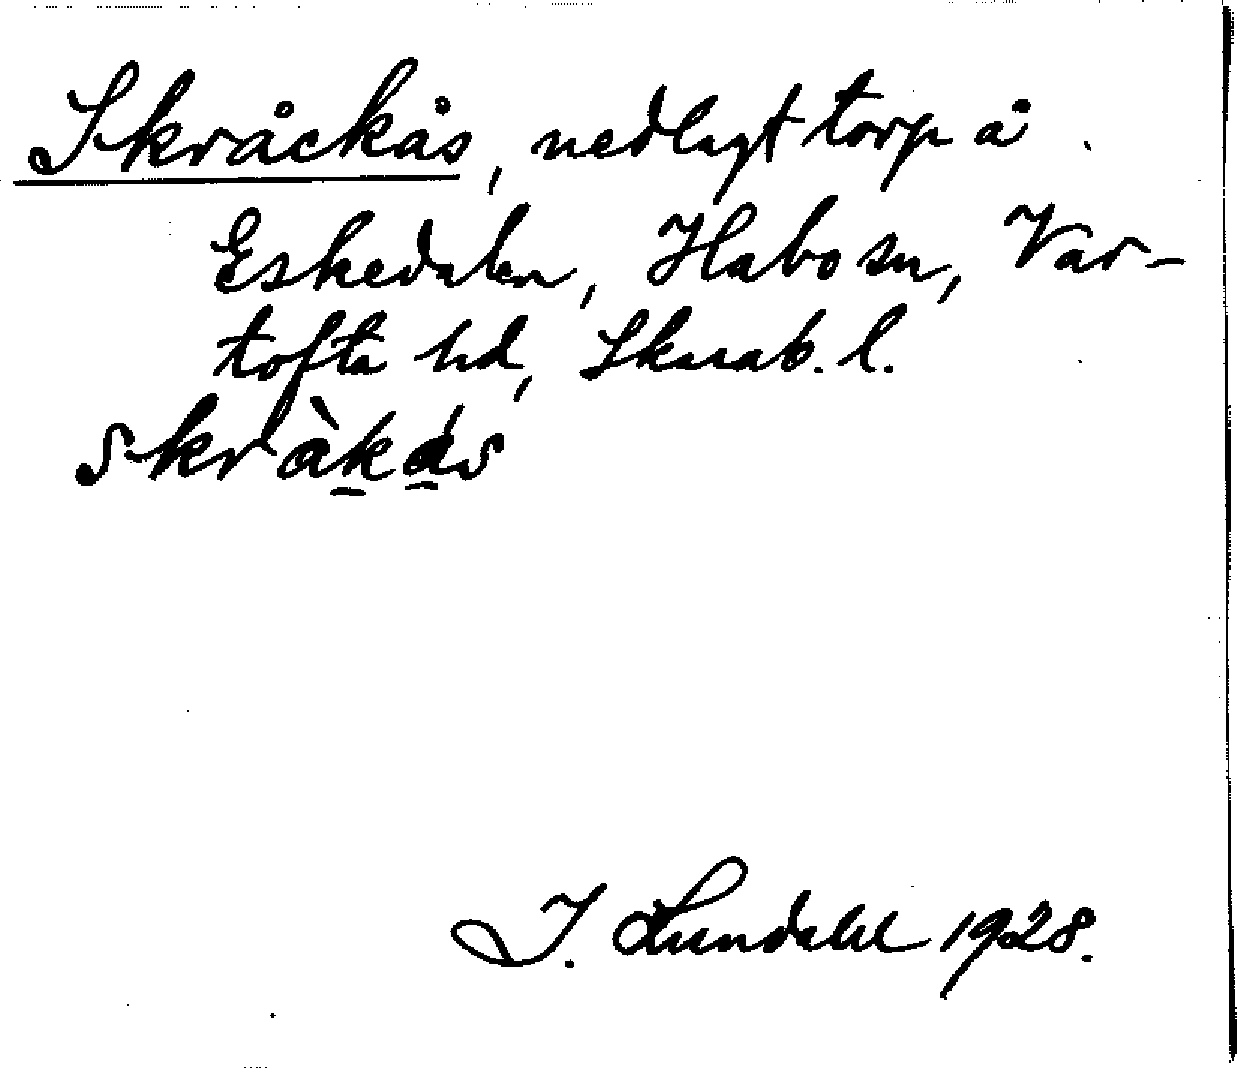 Skråckås, nedlagt torp å
Eskedalen, Habo sn, Var-
tofta hd, Skarab. l.
skràkás
I. Lundahl 1928.